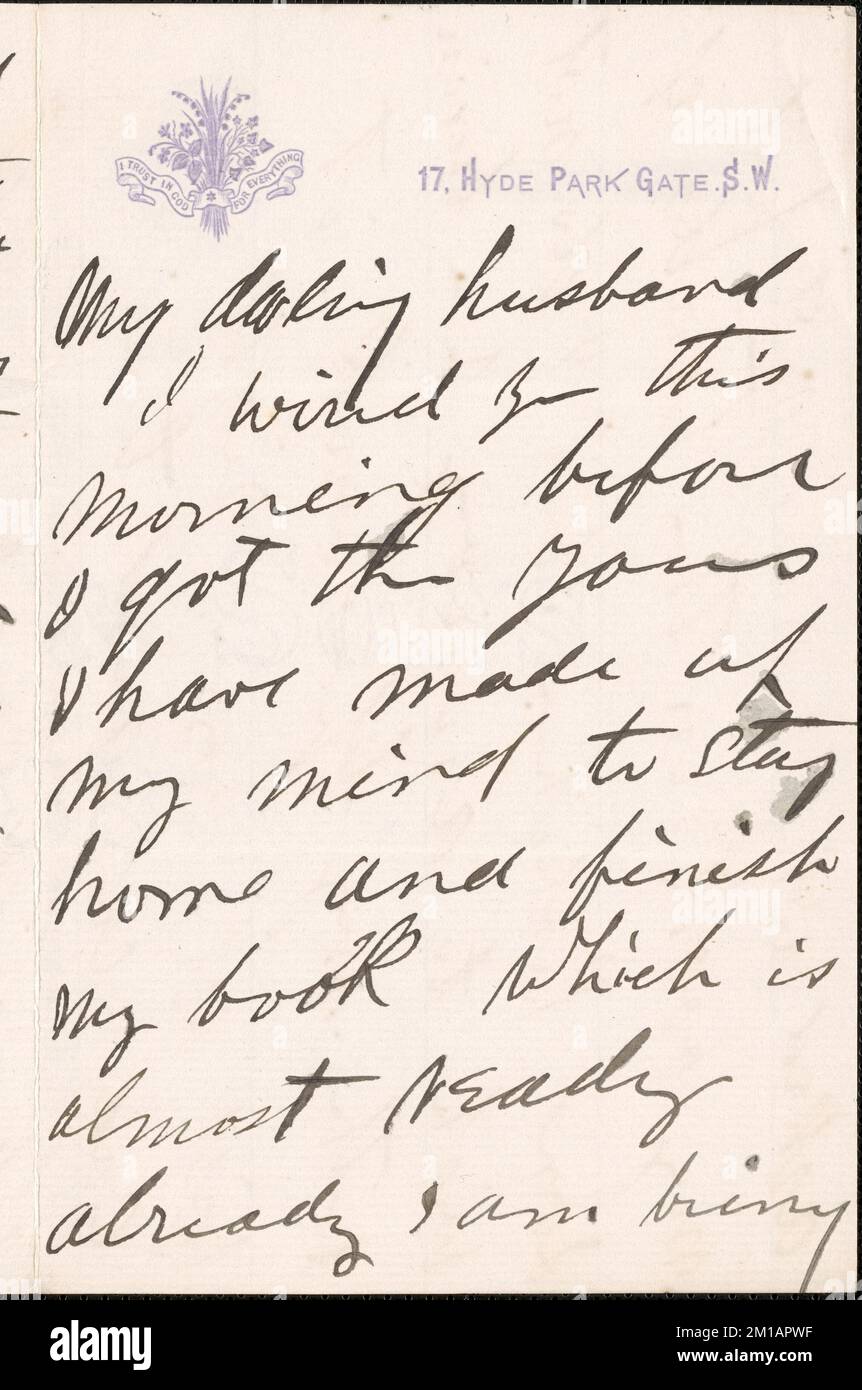 I TRUST IN GOD FOR EVERYTHING
17, HYDE PARK GATE. S.W.
My darling husband
I wired you this
morning before
I got the yours
I have made up
my mind to stay
home and finish
my book which is
almost ready
already I am
alamy
Image ID: 2M1APWF
www.alamy.com